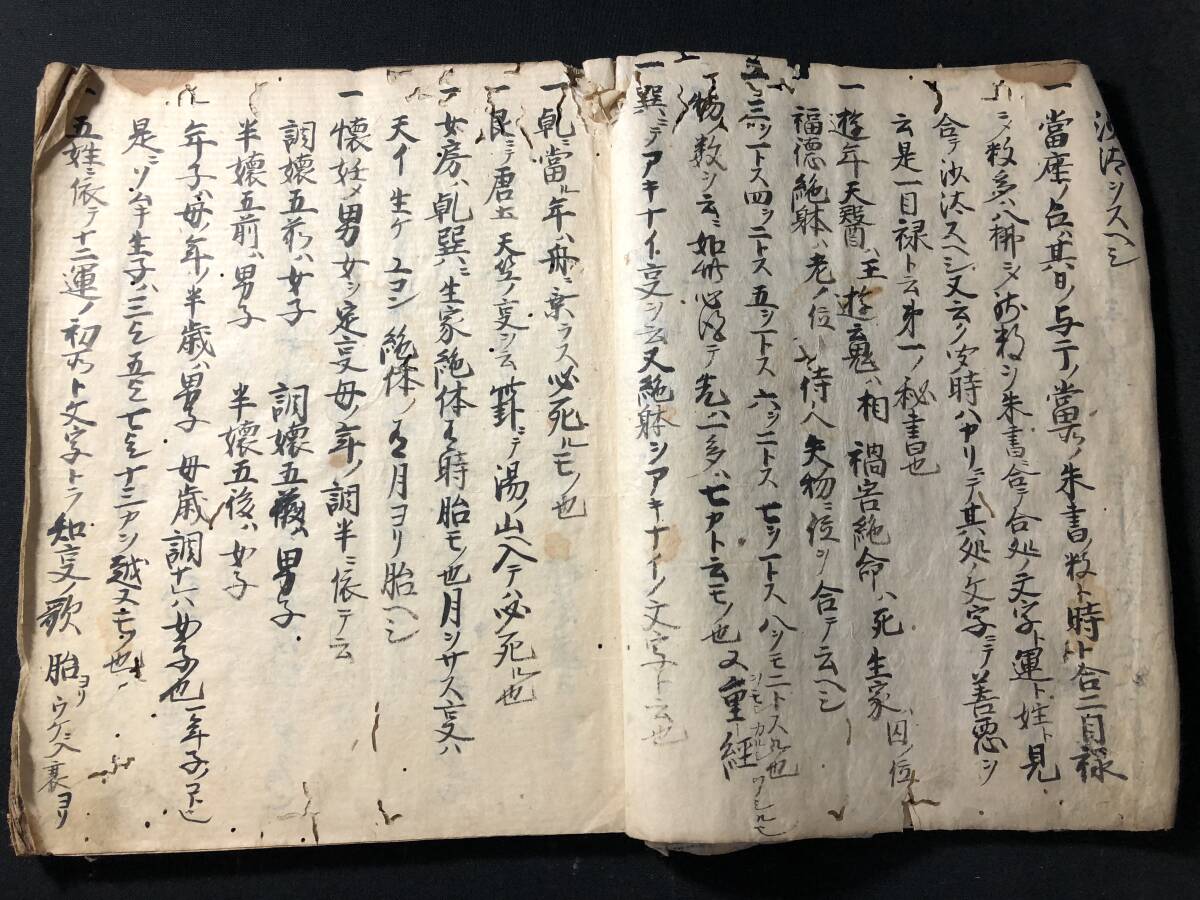 沙汰シスヘシ
一當座ノ占ハ其日ノ与丁ノ當所ノ朱書ノ数ト時ト合二目禄
ニメ数多ハ八拂シメ残数シ朱書ニ合テ合処ノ文字ト運ト姓ト見
合テ沙汰スヘシ又云ノ時ハカリニテ其処ノ文字ニテ善悪シ
云是一目禄ト云第一ノ秘書也
一遊年天醫ハ王 遊魂ハ相 禍害絶命ハ死 生家ハ囚ノ位
福徳絶躰ハ老ノ位 侍人失物ニ位シ合テ云ヘシ
三ツ一トス四シニトス五シ一トス六シニトス七シ一トス八シモニトスル也
物数シ云ニ如此心得テ先ハ一多ハ七カト云モノ也又重ト軽
一巽ニテアキナイ支シ云又絶躰シアキナイノ文字ト云也
一乾ニ當ル年ハ舟ニ乗ラス必死ルモノ也
一艮ニテ唐土天竺ノ支シ云 卦ニテ湯ノ山ヘ入テハ必死ル也
一女房ハ乾巽ハニ生家絶体ノ時胎モノ也月シサス支ハ
天イ生ケ ユコン 絶体ノ月ヨリ胎ヘシ
一懐妊メ男女シ定支母ノ年ノ調半ニ依テ云
調懐五前ハ女子 調懐五後ハ男子
半懐五前ハ男子 半懐五後ハ女子
年子ハ母ノ年ノ半歳ハ男子 母歳調ナレハ女子也 年子ノコト
是ニソ生子ハ三五七十三ケシ越スモノ也
一五姓ニ依テ十二運ノ初所ト文字トシ知支ノ歌 胎ヨリウケニ入衰ヨリ